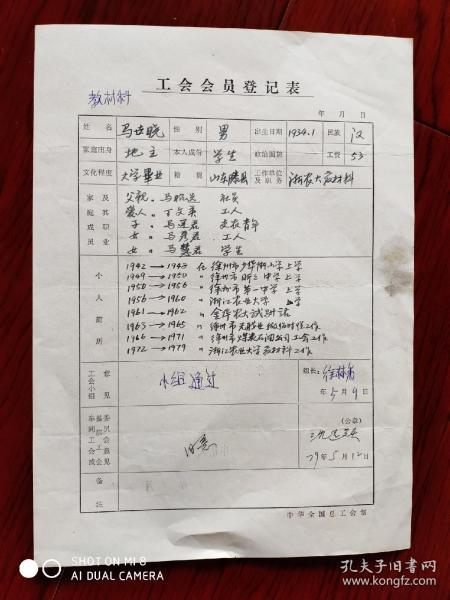 工会会员登记表
教材科
年 月 日
姓名 马世晓 性别 男 出生日期 1934.1 民族 汉
家庭出身 地主 本人成份 学生 政治面貌 工资 53
文化程度 大学毕业 籍贯 山东滕县 工作单位及职务 浙农大教材科
家庭成员及其职业
父亲。马 社员
爱人。丁文英 工人
子。马 支农青年
女。马彦君。工人
女。马慧君 学生
个人简历
1942 → 1948 在徐州市 小学上学
1949 → 1950 〃徐州市 中学上学
1950 → 1956 〃徐州市第一中学上学
1956 → 1960 〃浙江农业大学 上学
1961 → 1962 〃金华农大试验站
1963 → 1965 〃徐州市 做临时性工作
1966 → 1971 〃徐州市煤炭石油公司工会工作
1972 → 1979 〃浙江农业大学教材科工作
工会小组意见 小组通过 组长:
年5月9日
车间工会或基层工会委员会意见 同意 (公章)
79年5月12日
备注
中华全国总工会制
SHOT ON MI 8
AI DUAL CAMERA
孔夫子旧书网
www.kongfz.com